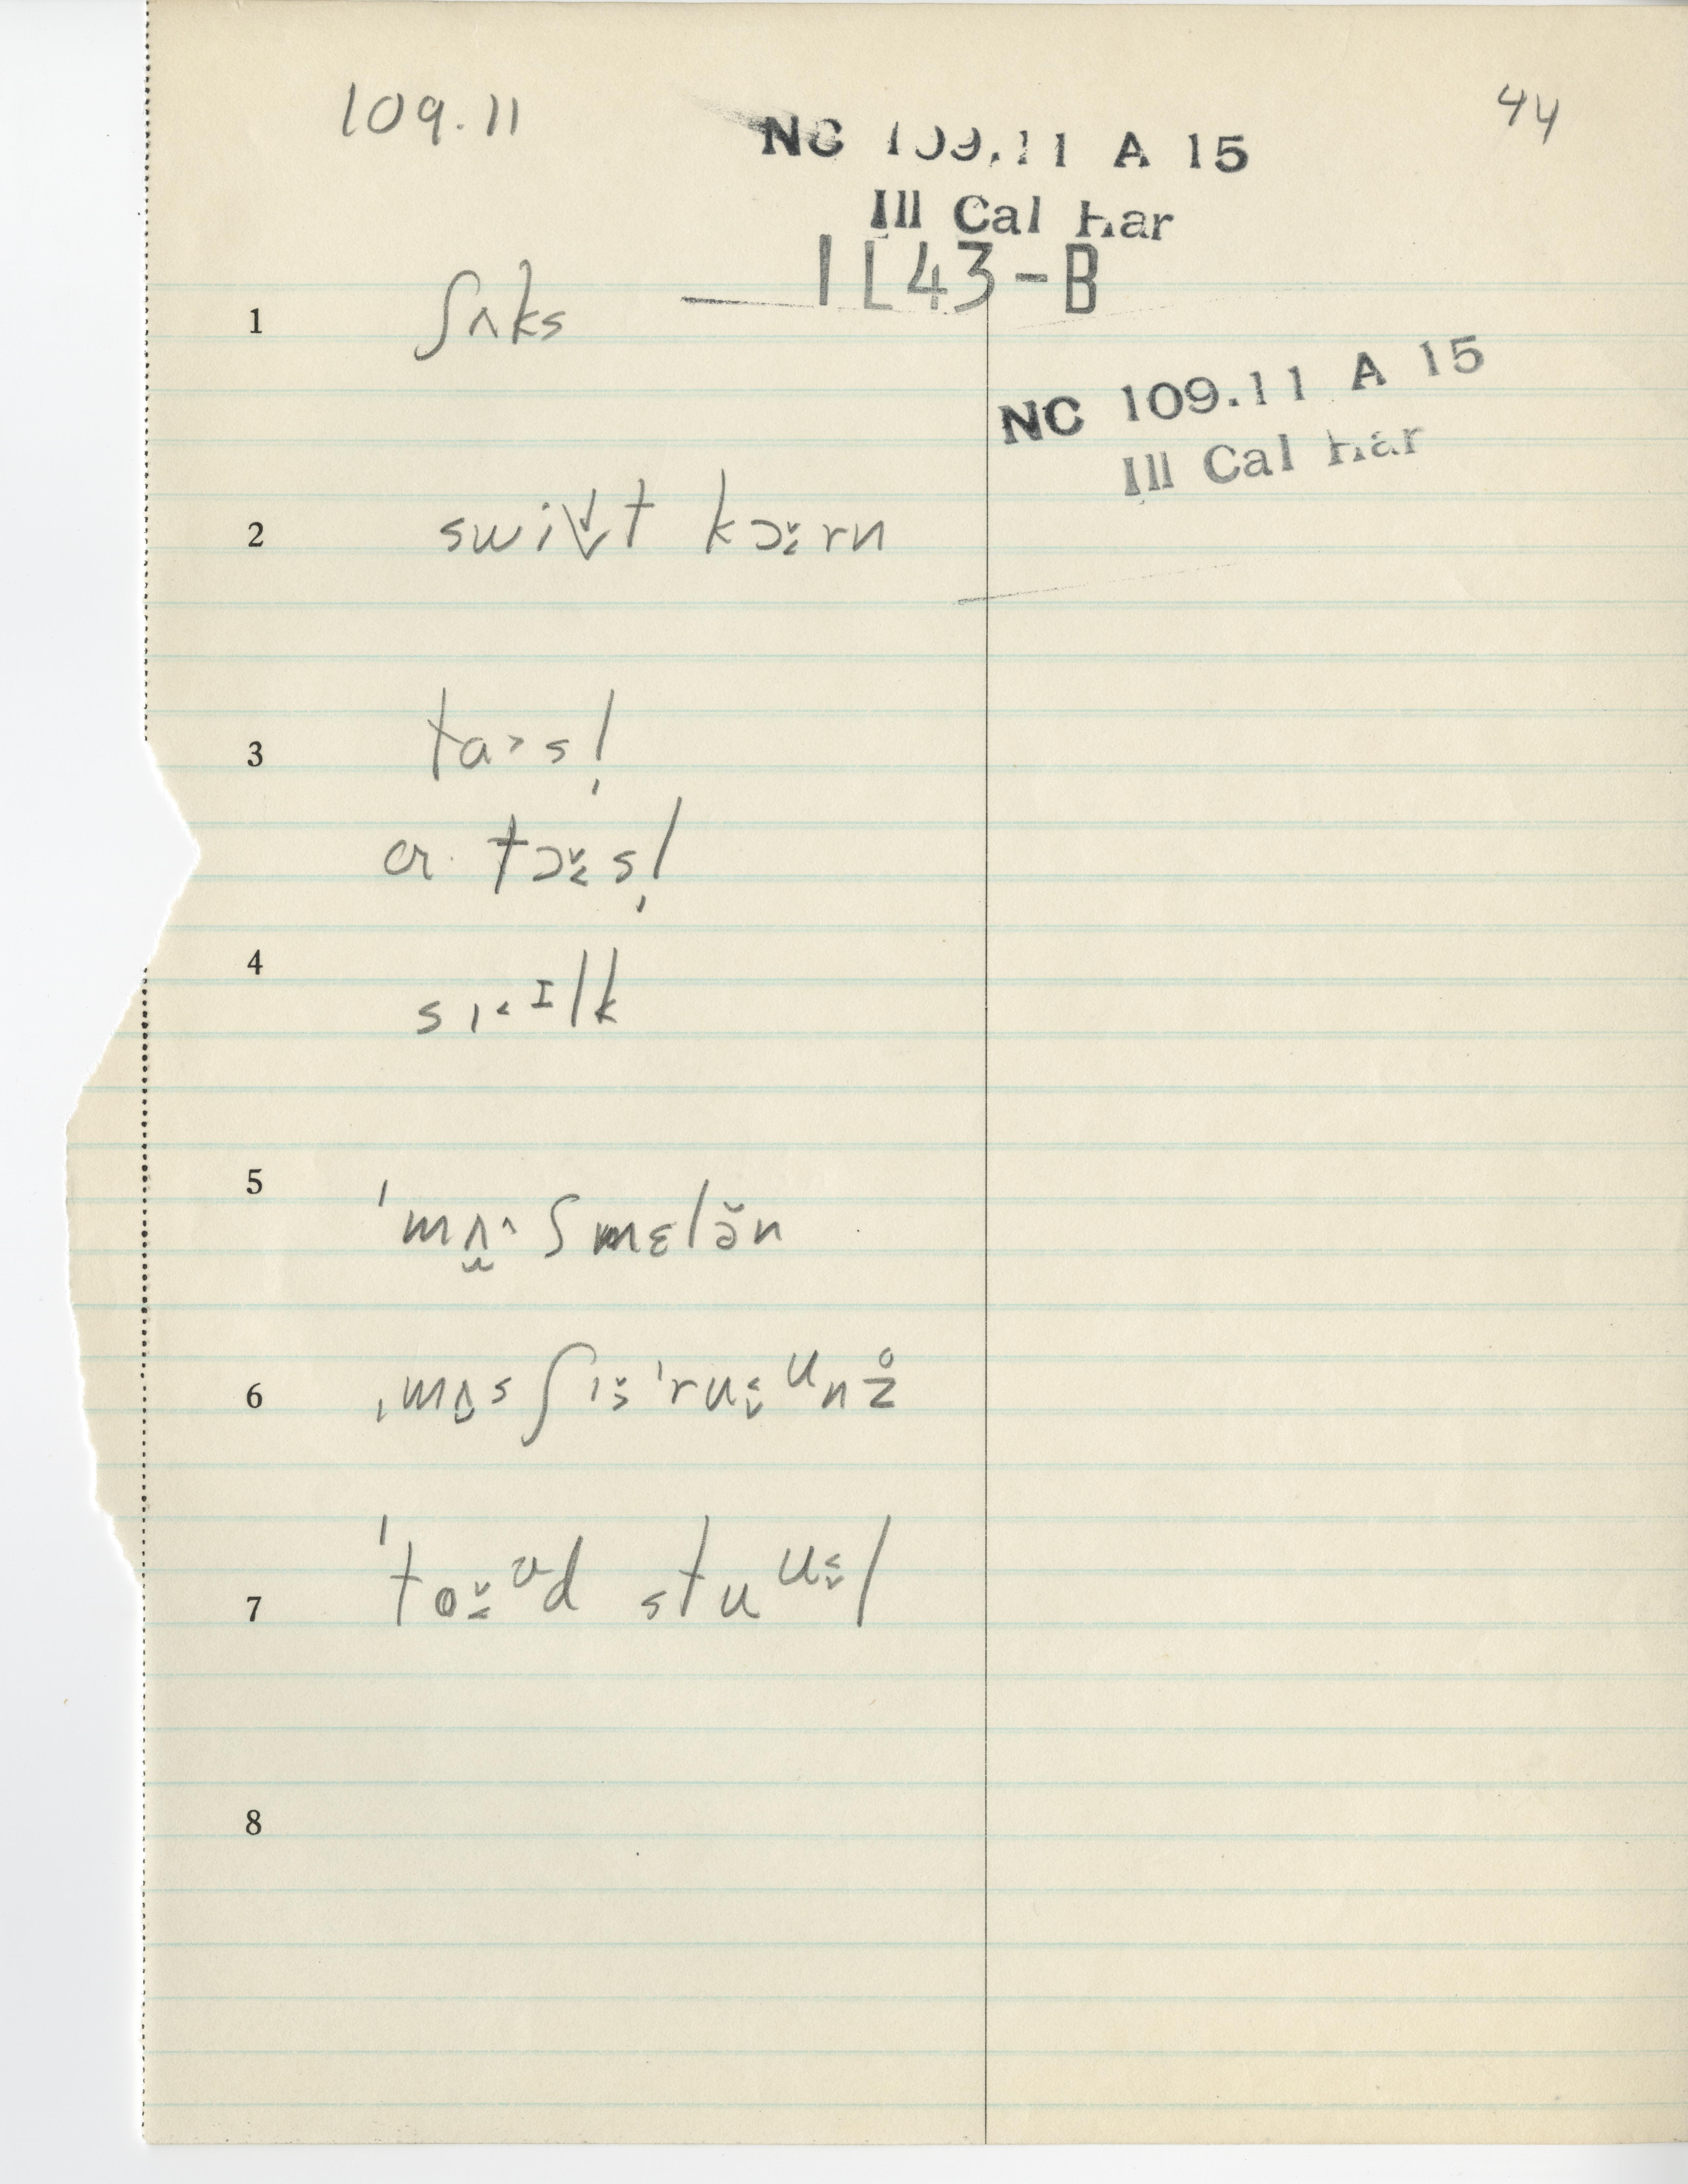 109.11
44
NC 109.11 A 15
Ill Cal Har
IL43-B
1 ʃʌks
NC 109.11 A 15
Ill Cal Har
2 kɔ̬˞rn
3 ta˃sl̩
or tɔ˞sl̩
4 sɪ˂ᴵlk
5 ˈmʌ˄ʃmɛlə̆n
6 ˌmʌsʃɪˈruᵘnz̥
7 ˈtoᶷd stuᵘl
8